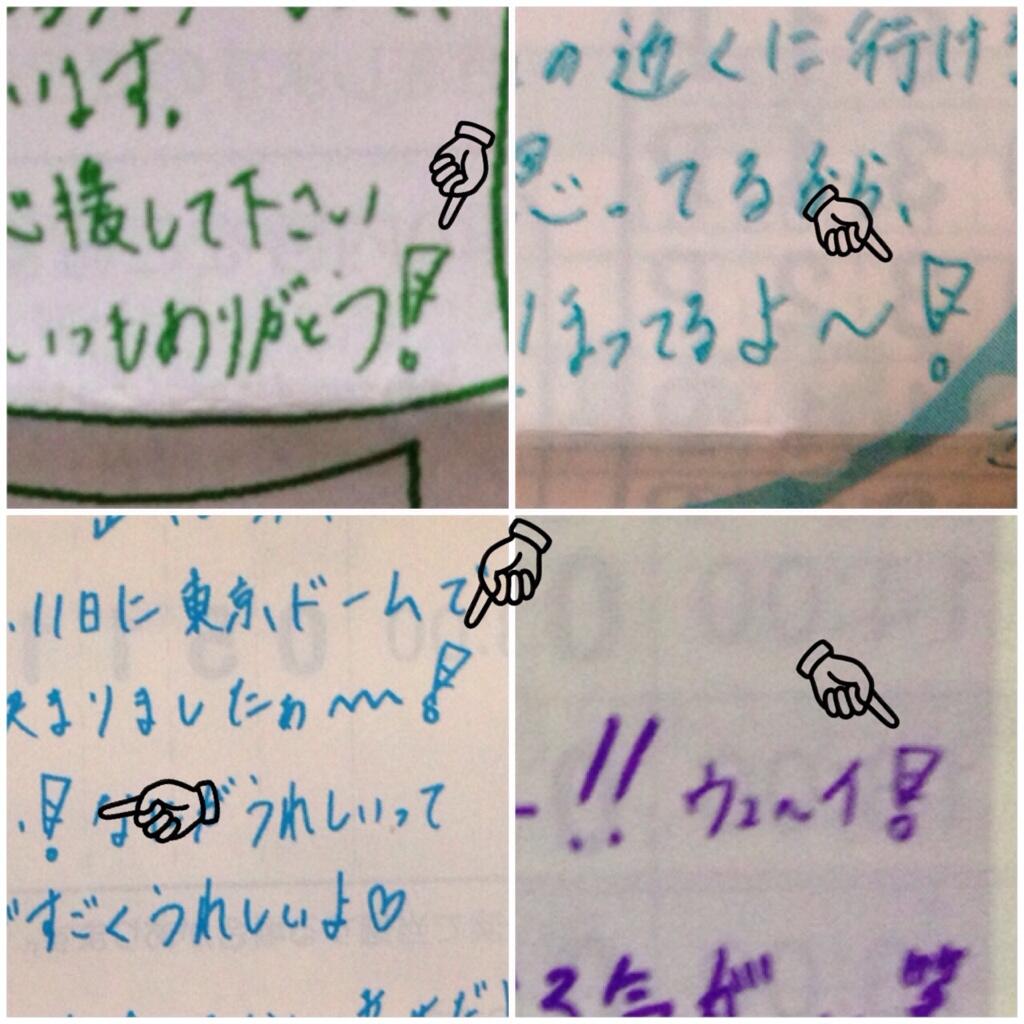 います。
応援して下さい
いつもありがとう!
の近くに行け
思ってるから、
まってるよ〜!
.11日に東京ドームで
決まりましたぁ〜!
! なにがうれしいって
すごくうれしいよ♡
!! ウェ〜イ!